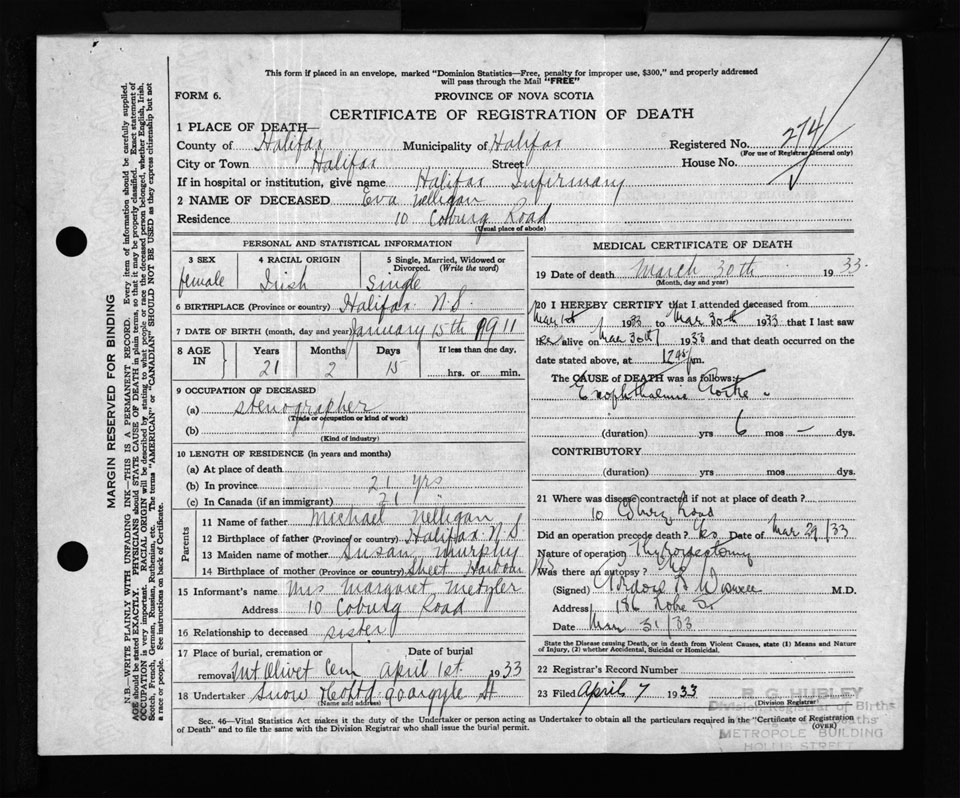 This form if placed in an envelope, marked "Dominion Statistics—Free, penalty for improper use, $300," and properly addressed
will pass through the Mail "FREE"
FORM 6.
PROVINCE OF NOVA SCOTIA
CERTIFICATE OF REGISTRATION OF DEATH
1 PLACE OF DEATH—
County of Halifax Municipality of Halifax Registered No. 274
(For use of Registrar General only)
City or Town Halifax Street House No.
If in hospital or institution, give name Halifax Infirmary
2 NAME OF DECEASED Eva Nelligan
Residence 10 Coburg Road
(Usual place of abode)
PERSONAL AND STATISTICAL INFORMATION
3 SEX
4 RACIAL ORIGIN
5 Single, Married, Widowed or
Divorced. (Write the word)
female Irish Single
6 BIRTHPLACE (Province or country) Halifax N.S.
7 DATE OF BIRTH (month, day and year) January 15th 1911
8 AGE IN
Years Months Days If less than one day,
21 2 15 hrs. or min.
9 OCCUPATION OF DECEASED
(a) stenographer
(Trade or occupation or kind of work)
(b)
(Kind of industry)
10 LENGTH OF RESIDENCE (in years and months)
(a) At place of death
(b) In province 21 yrs
(c) In Canada (if an immigrant) 21 "
Parents
11 Name of father Michael Nelligan
12 Birthplace of father (Province or country) Halifax N.S
13 Maiden name of mother Susan Murphy
14 Birthplace of mother (Province or country) Sheet Harbour N.S
15 Informant's name Mrs Margaret Metzler
Address 10 Coburg Road
16 Relationship to deceased sister
17 Place of burial, cremation or Date of burial
removal Mt Olivet Cem April 1st 1933
18 Undertaker Snow & Co Ltd 90 Argyle St
(Name and address)
MEDICAL CERTIFICATE OF DEATH
19 Date of death March 30th 1933
(Month, day and year)
20 I HEREBY CERTIFY that I attended deceased from
Mar 1st 1933 to Mar 30th 1933 that I last saw
her alive on Mar 30th 1933 and that death occurred on the
date stated above, at m.
The CAUSE of DEATH was as follows:
Exophthalmic Goitre
(duration) yrs 6 mos — dys.
CONTRIBUTORY
(duration) yrs mos dys.
21 Where was disease contracted if not at place of death?
10 Coburg Road
Did an operation precede death? Yes Date of Mar 29/33
Nature of operation Thyroidectomy
Was there an autopsy? No
(Signed) M.D.
Address 186
Date Mar 31/33
State the Disease causing Death, or in death from Violent Causes, state (1) Means and Nature
of Injury, (2) whether Accidental, Suicidal or Homicidal.
22 Registrar's Record Number
23 Filed April 7 1933
(Division Registrar)
R. G. HUBLEY
Division Registrar of Births
Deaths
METROPOLE BUILDING
HOLLIS STREET
Sec. 46—Vital Statistics Act makes it the duty of the Undertaker or person acting as Undertaker to obtain all the particulars required in the "Certificate of Registration
of Death" and to file the same with the Division Registrar who shall issue the burial permit.
(OVER)
MARGIN RESERVED FOR BINDING
N.B.—WRITE PLAINLY WITH UNFADING INK—THIS IS A PERMANENT RECORD. Every item of information should be carefully supplied.
AGE should be stated EXACTLY. PHYSICIANS should STATE CAUSE OF DEATH in plain terms, so that it may be properly classified. Exact statement of
OCCUPATION is very important. RACIAL ORIGIN will be described by stating to what people or race the deceased person belonged, whether English, Irish,
Scotch, French, German, Russian, Ruthenian, etc. The terms "AMERICAN" or "CANADIAN" SHOULD NOT BE USED as they express citizenship but not
a race or people. See instructions on back of Certificate.